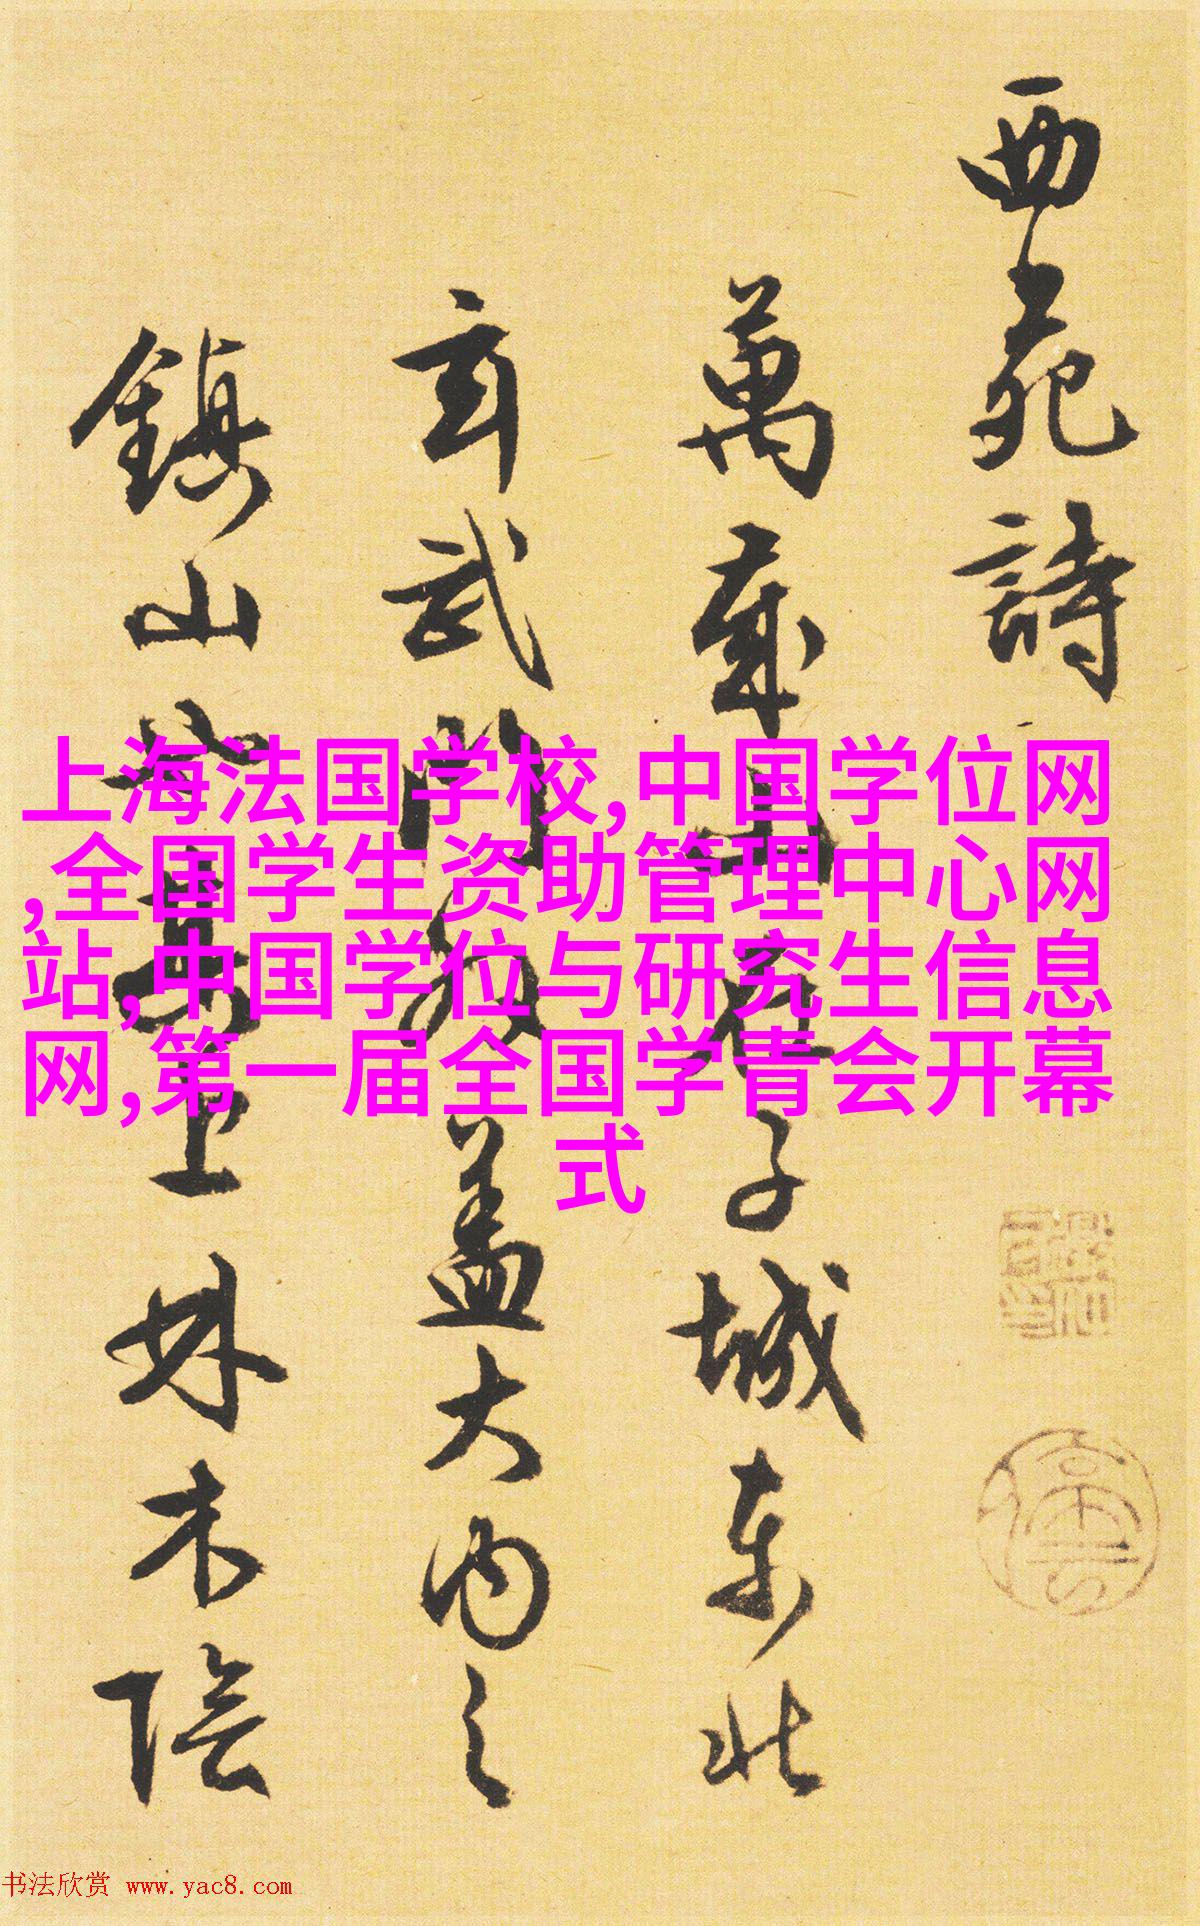 西苑詩
萬歲山在子城東北
玄武門外蓋大內之
鎮山也其上林木陰
上海法国学校,中国学位网
,全国学生资助管理中心网
站,中国学位与研究生信息
网,第一届全国学青会开幕
式
书法欣赏 www.yac8.com